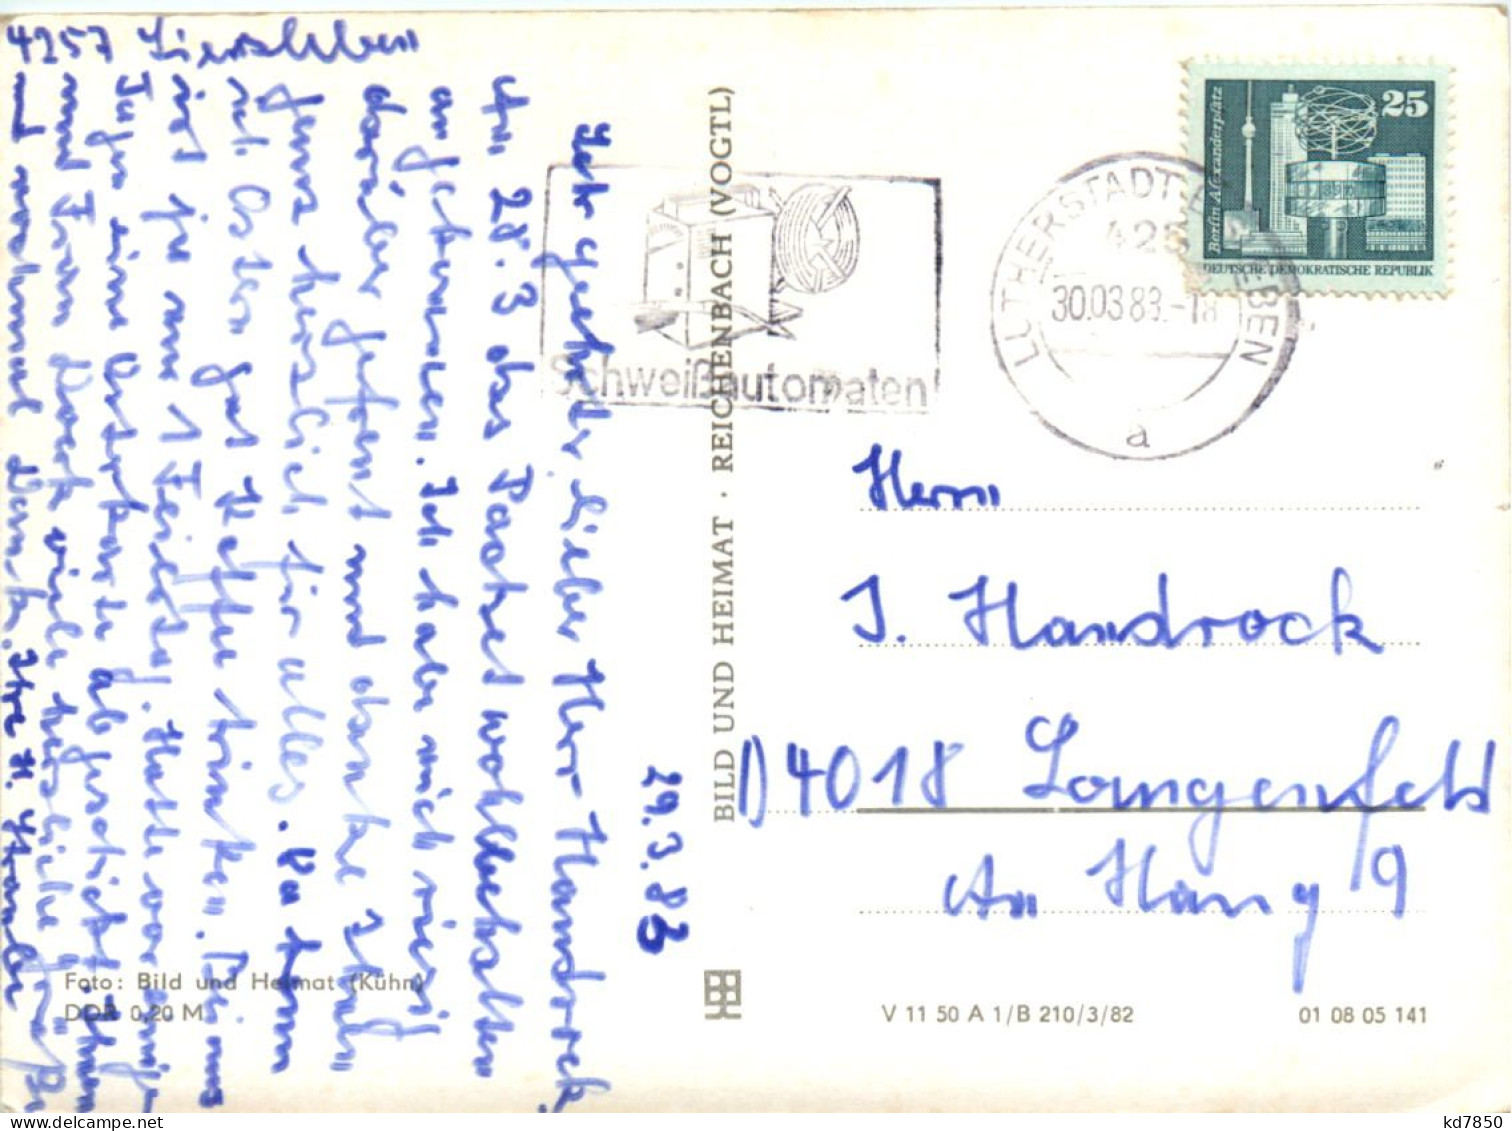 4257 Siersleben
29.3.83
Sehr geehrter lieber Herr Handrock,
Am 28.3 das Packet wohlbehalten
angekommen. Ich habe mich riesig
darüber gefreut und danke Ihnen
ganz herzlich für alles. Da kann
ich Ostern gut Kaffee trinken. Bei uns
ist ja nur 1 Feiertag. Hatte vor einigen
Tagen eine Osterkarte abgeschickt. Ihnen
und Frau viele herzliche Grüße
und nochmal Dank. Ihre H.
Foto: Bild und Heimat (Kühn)
DDR 0,20 M
BILD UND HEIMAT · REICHENBACH (VOGTL)
Schweißautomaten
LUTHERSTADT EISLEBEN
30.03.83.-18
a
Berlin, Alexanderplatz
25
DEUTSCHE DEMOKRATISCHE REPUBLIK
Herrn
J. Handrock
D4018 Langenfeld
Am Hang 19
V 11 50 A 1/B 210/3/82
01 08 05 141
kd7850